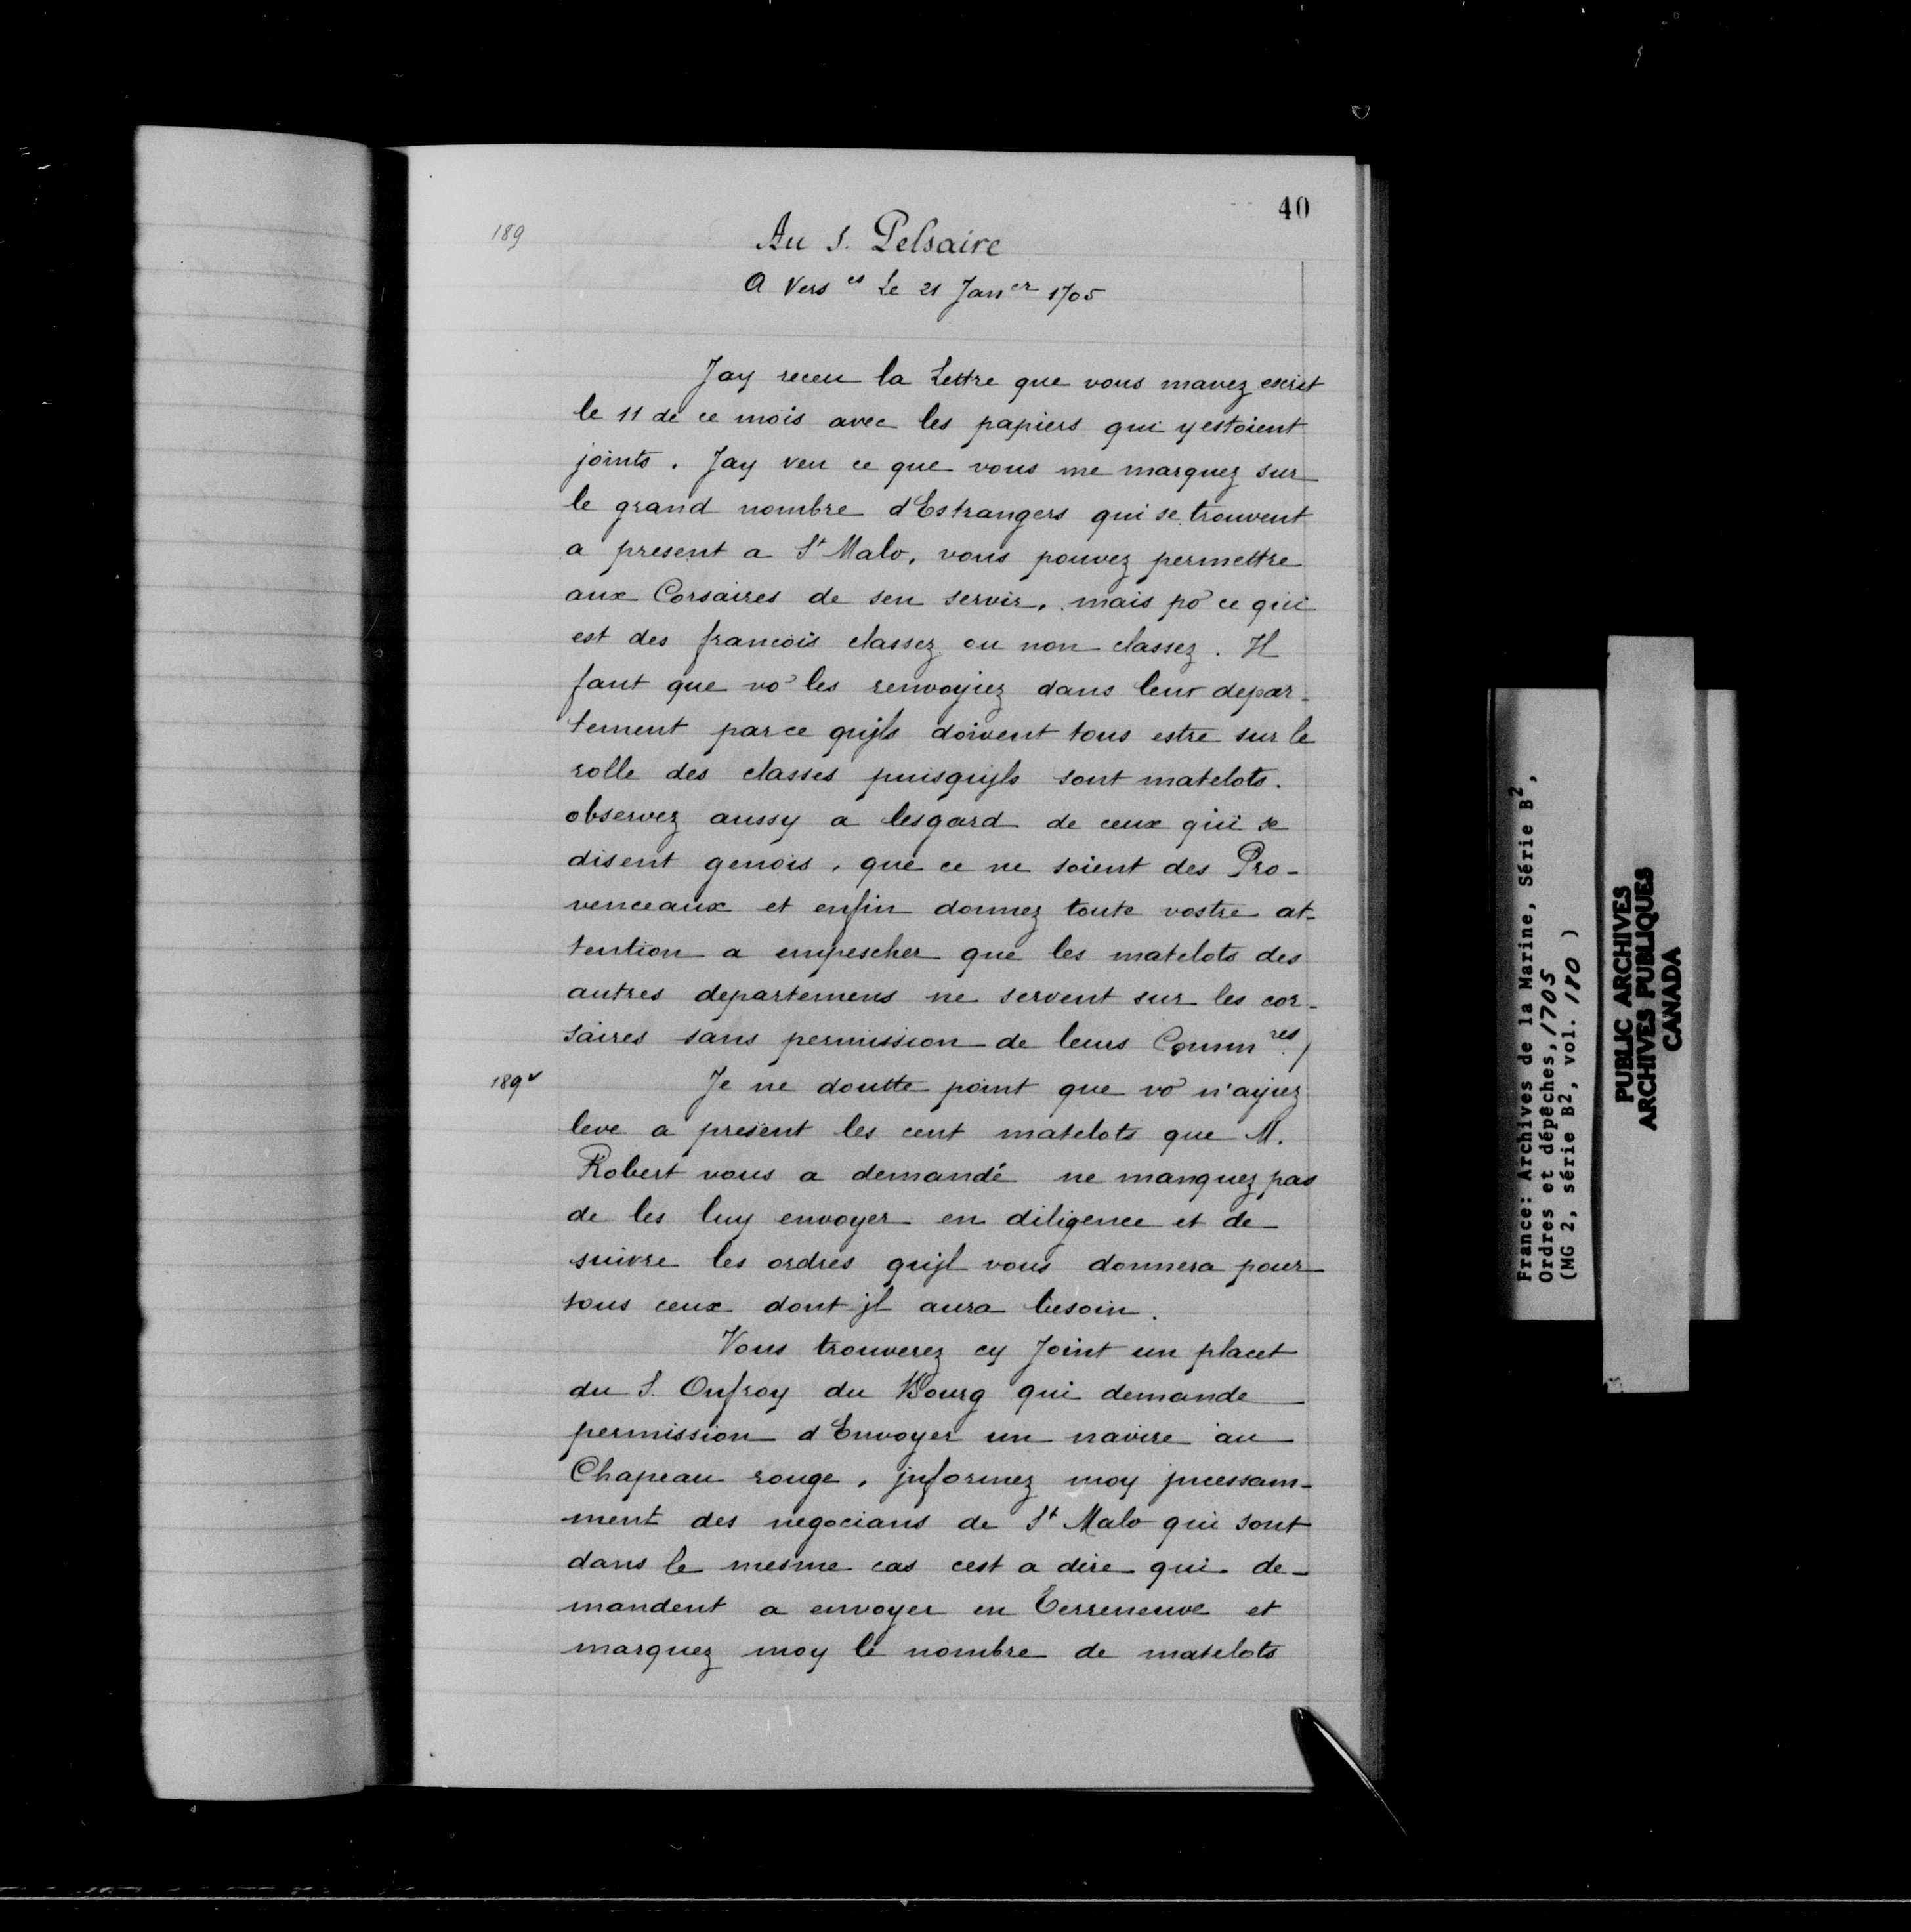 40
189
Au S. Pelsaire
A Vers es Le 21 Jan er 1705
Jay receu la Lettre que vous mavez escrit
le 11 de ce mois avec les papiers qui y estoient
joints. Jay veu ce que vous me marquez sur
le grand nombre d'Estrangers qui se trouvent
a present a St Malo, vous pouvez permettre
aux Corsaires de sen servir, mais po ce qui
est des francois classez ou non classez. Il
faut que vo les renvoyiez dans leur depar-
tement parce qujls doivent tous estre sur le
rolle des classes puisqujls sont matelots.
observez aussy a lesgard de ceux qui se
disent genois, que ce ne soient des Pro-
venceaux et enfin donnez toute vostre at-
tention a empescher que les matelots des
autres departemens ne servent sur les cor-
saires sans permission de leurs Comm res./
189v
Je ne doutte point que vo n'ayiez
leve a present les cent matelots que M.
Robert vous a demandé ne manquez pas
de les luy envoyer en diligence et de
suivre les ordres qujl vous donnera pour
tous ceux dont jl aura besoin.
Vous trouverez cy Joint un placet
du S. Onfroy du Bourg qui demande
permission d'Envoyer un navire au
Chapeau rouge, jnformez moy jncessam-
ment des negocians de St Malo qui sont
dans le mesme cas cest a dire qui de-
mandent a envoyer en Terreneuve et
marquez moy le nombre de matelots
France: Archives de la Marine, Série B2,
Ordres et dépêches, 1705
(MG 2, série B2, vol. 180 )
PUBLIC ARCHIVES
ARCHIVES PUBLIQUES
CANADA